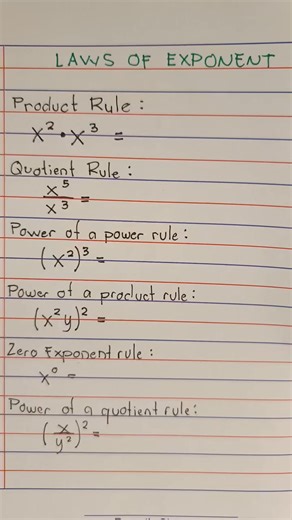 LAWS OF EXPONENT
Product Rule :
x² • x³ =
Quotient Rule :
x⁵/x³ =
Power of a power rule :
(x²)³ =
Power of a product rule :
(x²y)² =
Zero Exponent rule :
x⁰ =
Power of a quotient rule :
(x/y²)² =